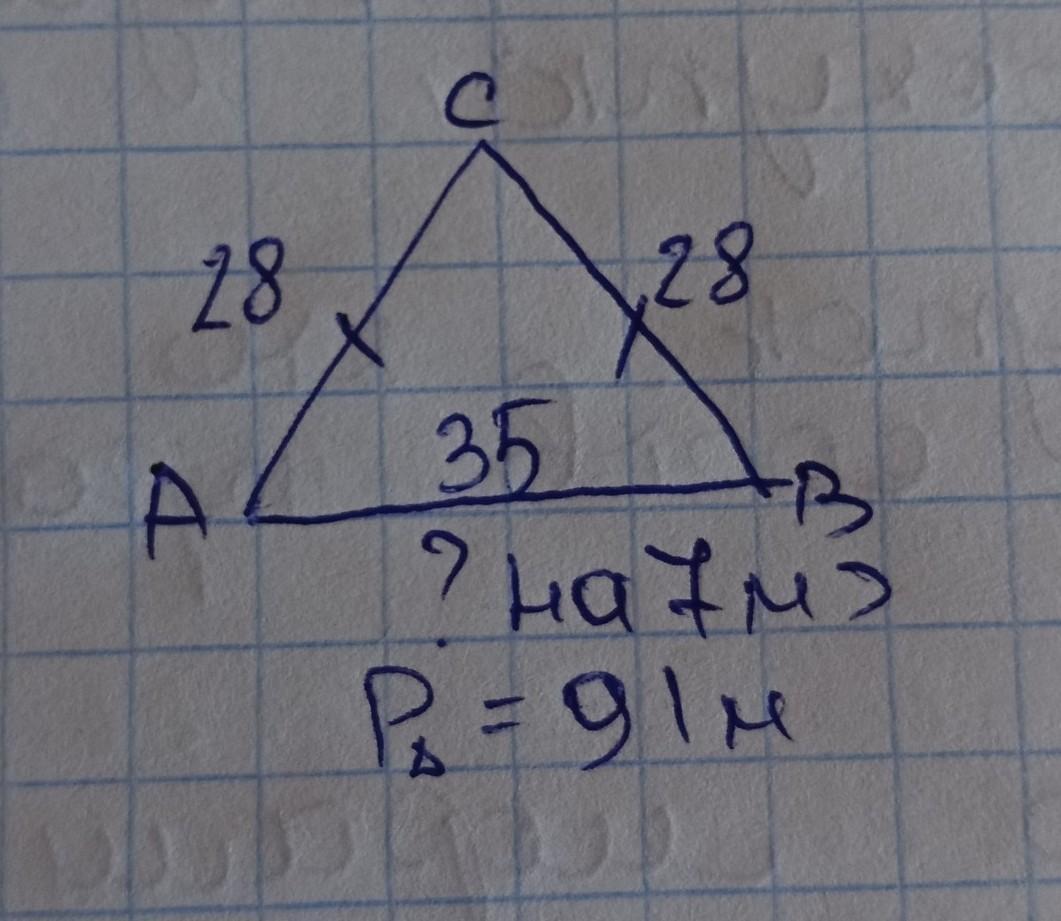 C
28
28
35
A
B
? на 7 м >
P△ = 91 м